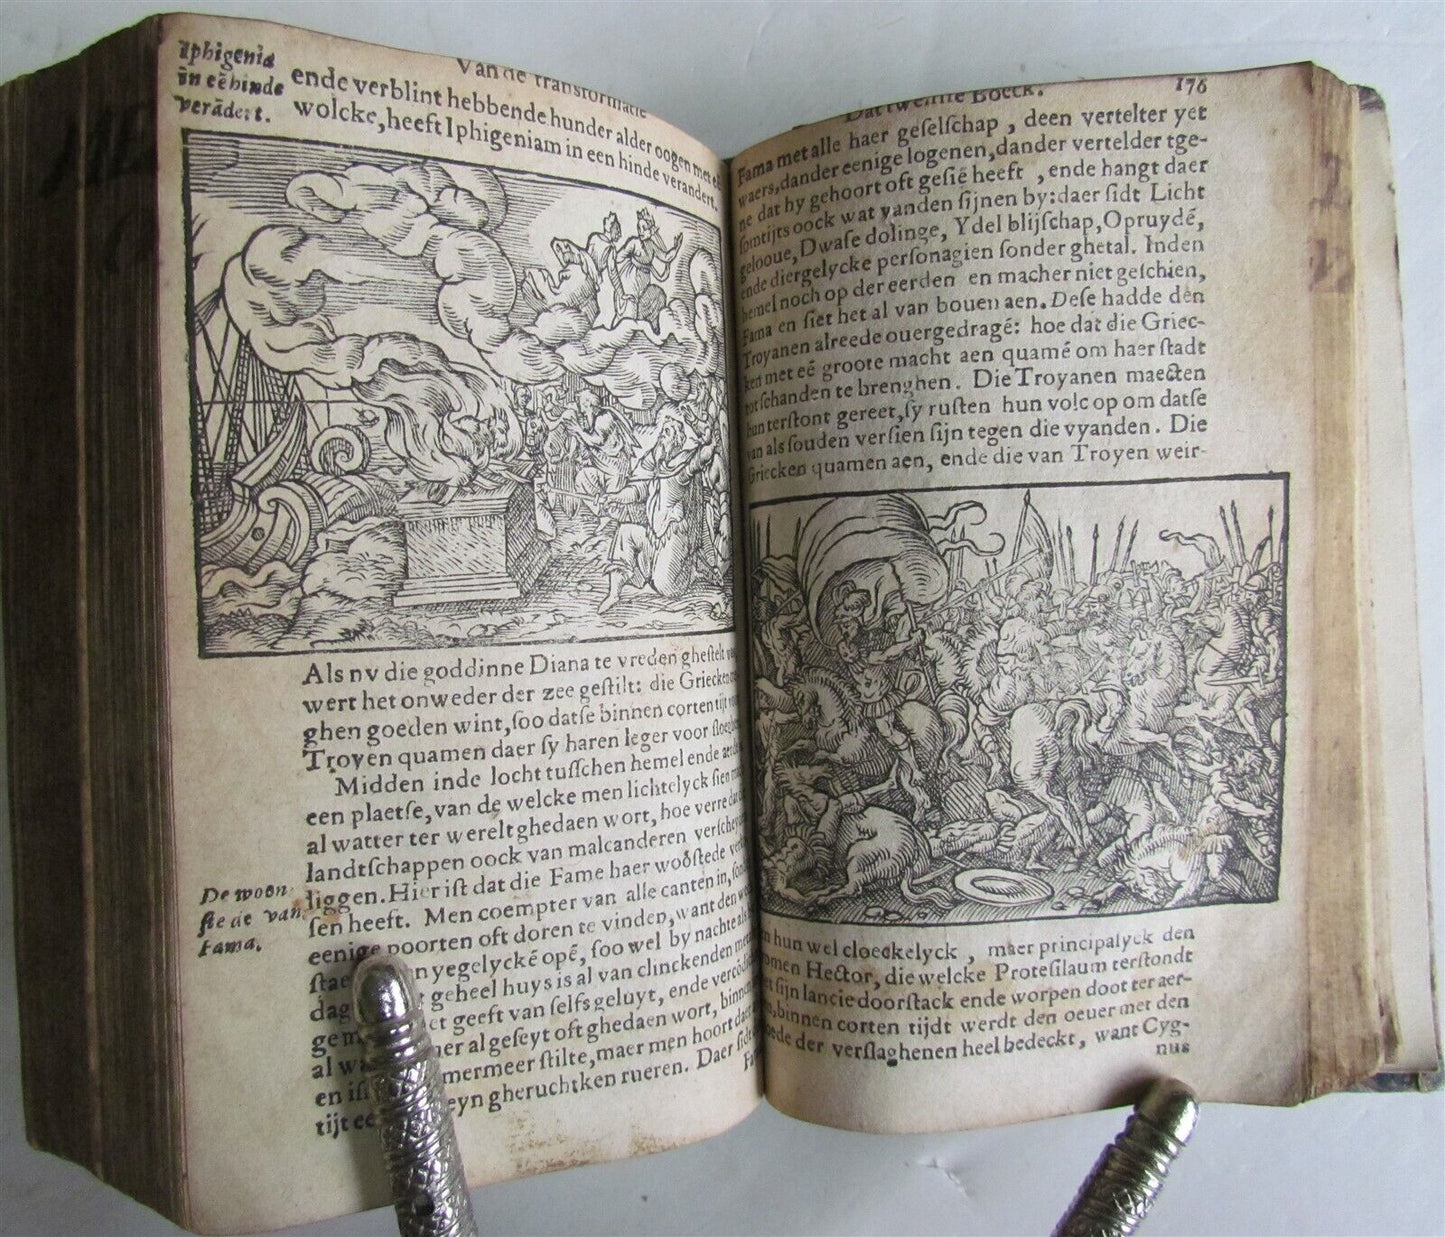 Van de transformatie
Iphigenia
in eē hinde
verādert.
ende verblint hebbende hunder alder oogen met
wolcke, heeft Iphigeniam in een hinde verandert.
Als nv die goddinne Diana te vreden gheſtelt
wert het onweder der zee geſtilt: die Griecken
ghen goeden wint, ſoo datſe binnen corten tijt
Troyen quamen daer ſy haren leger voor
Midden inde locht tuſſchen hemel ende
een plaetſe, van de welcke men lichtelyck ſien
al watter ter werelt ghedaen wort, hoe verre dat
landtſchappen oock van malcanderen
De woon-
ſtede van
Fama.
liggen. Hier iſt dat die Fame haer woōſtede
ſen heeft. Men coempter van alle canten in,
eenige poorten oft doren te vinden, want den
yegelycké opé, ſoo wel by nachte als
dag geheel huys is al van clinckenden
geeft van ſelfs geluyt, ende
al geſeyt oft ghedaen wort, binnen
al mermeer ſtilte, maer men hoort daer
en gheruchtken rueren. Daer
tijt
Dat twelfſte Boeck. 176
Fama met alle haer geſelſchap, deen vertelter yet
waers, dander eenige logenen, dander vertelder tge-
ne dat hy gehoort oft geſiē heeft, ende hangt daer
ſomtijts oock wat vanden ſijnen by: daer ſidt Licht
gelooue, Dwaſe dolinge, Ydel blijſchap, Opruydé,
ende diergelycke perſonagien ſonder ghetal. Inden
hemel noch op der eerden en macher niet geſchien,
Fama en ſiet het al van bouen aen. Deſe hadde dén
Troyanen alreede ouergedragé: hoe dat die Griec-
ken met eé groote macht aen quamé om haer ſtadt
tot ſchanden te brenghen. Die Troyanen maecten
hun terſtont gereet, ſy ruſten hun volc op om datſe
van als ſouden verſien ſijn tegen die vyanden. Die
Griecken quamen aen, ende die van Troyen weir-
hun wel cloeckelyck, maer principalyck den
Hector, die welcke Proteſilaum terſtondt
ſijn lancie doorſtack ende worpen doot ter aer-
binnen corten tijdt werdt den oeuer met den
der verſlaghenen heel bedeckt, want Cyg-
nus